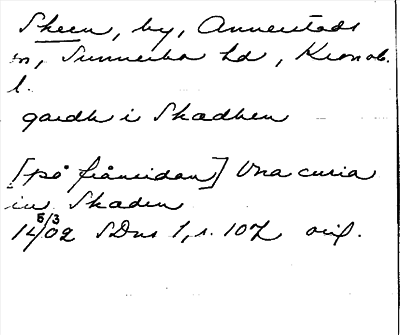 Skeen, by, Annerstads
sn, Sunnerbo hd, Kronob.
l.
gardh i Skadhen
[på frånsidan] Una curia
in Skaden
14 5/3 02 SDns 1, s. 107 orig.